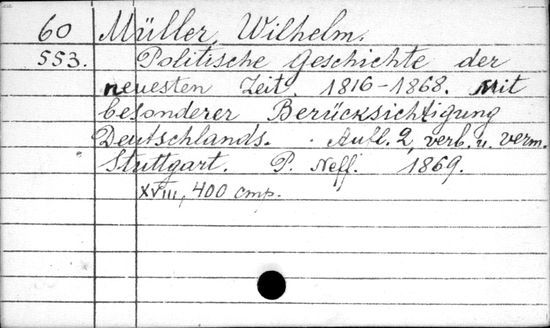 60 Müller, Wilhelm.
553. Politische Geschichte der
neuesten Zeit. 1816-1868. Mit
besonderer Berücksichtigung
Deutschlands. Aufl. 2, verb. u. verm.
Stuttgart. P. Neff. 1869.
XVIII, 400 cmp.